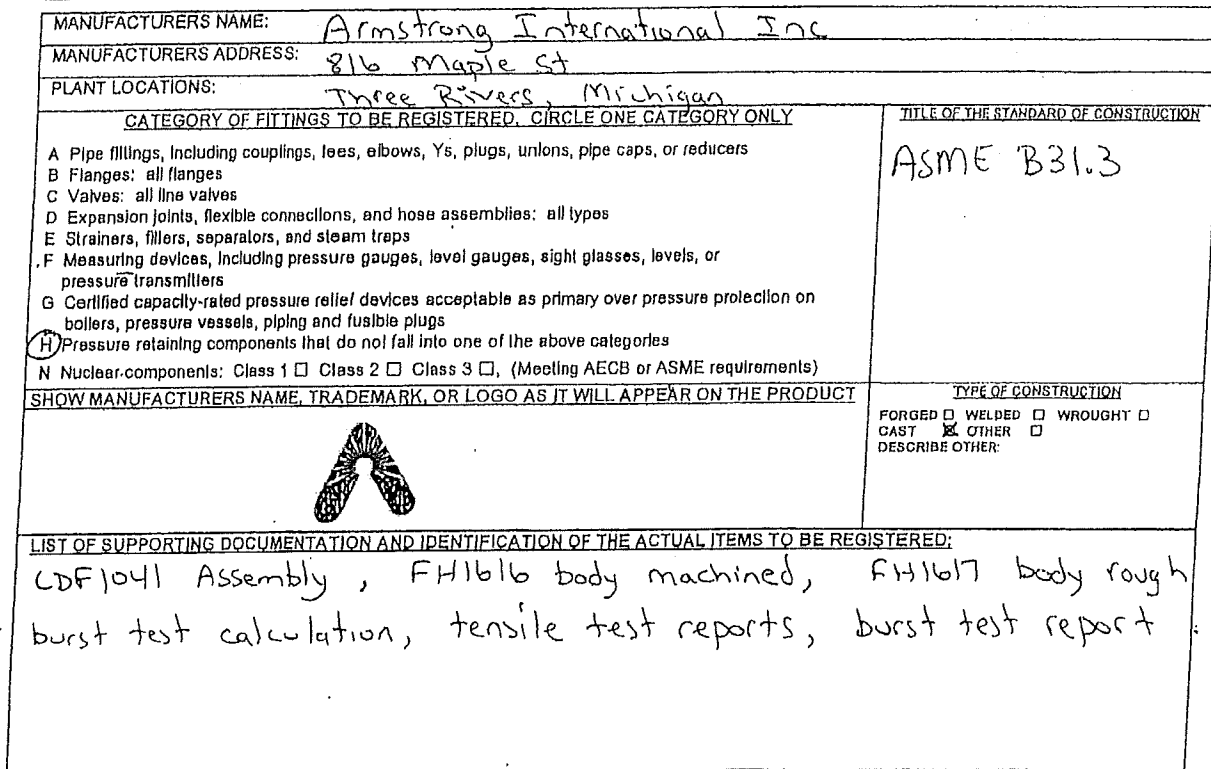 MANUFACTURERS NAME: Armstrong International Inc
MANUFACTURERS ADDRESS: 816 Maple St
PLANT LOCATIONS: Three Rivers, Michigan
CATEGORY OF FITTINGS TO BE REGISTERED, CIRCLE ONE CATEGORY ONLY
A Pipe fittings, including couplings, tees, elbows, Ys, plugs, unions, pipe caps, or reducers
B Flanges: all flanges
C Valves: all line valves
D Expansion joints, flexible connections, and hose assemblies: all types
E Strainers, filters, separators, and steam traps
F Measuring devices, including pressure gauges, level gauges, sight glasses, levels, or
pressure transmitters
G Certified capacity-rated pressure relief devices acceptable as primary over pressure protection on
boilers, pressure vessels, piping and fusible plugs
H Pressure retaining components that do not fall into one of the above categories
N Nuclear components: Class 1 ☐ Class 2 ☐ Class 3 ☐, (Meeting AECB or ASME requirements)
TITLE OF THE STANDARD OF CONSTRUCTION
ASME B31.3
SHOW MANUFACTURERS NAME, TRADEMARK, OR LOGO AS IT WILL APPEAR ON THE PRODUCT
TYPE OF CONSTRUCTION
FORGED ☐ WELDED ☐ WROUGHT ☐
CAST ☒ OTHER ☐
DESCRIBE OTHER:
LIST OF SUPPORTING DOCUMENTATION AND IDENTIFICATION OF THE ACTUAL ITEMS TO BE REGISTERED:
CDF1041 Assembly, FH1616 body machined, FH1617 body rough
burst test calculation, tensile test reports, burst test report